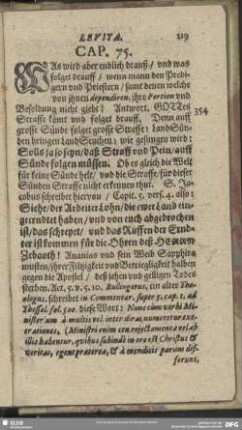 LEVITA. 119
CAP. 75.
WAs wird aber endlich drauff / und was
folget drauff / wenn mann den Predi-
gern und Priestern / samt denen welche
von ihnen dependiren, ihre Portion und
Besoldung nicht giebt? Antwort. GOTTes 354
Straffe kömt und folget drauff. Denn auff
grosse Sünde folget grosse Straffe: LandSün-
den bringen LandSeuchen: wie gesungen wird:
Solls ja so seyn / daß Straff und Pein / auff
Sünde folgen müssen. Ob es gleich die Welt
für keine Sünde helt / und die Straffe / für dieser
Sünden Straffe nicht erkennen thut. S. Ja-
cobus schreibet hiervon / Capit. 5. vers. 4. also:
Siehe / der Arbeiter Lohn / die ewer Land ein-
geerndtet haben / und von euch abgebrochen
ist / das schreyet / und das Ruffen der Ernd-
ter ist kommen für die Ohren deß HERREN
Zebaoth! Ananias und sein Weib Sapphira
musten / ihrer Filtzigkeit und Betrieglichkeit halben
gegen die Apostel / deß jehen und geligen Todes
sterben. Act. 5. v. 5. 10. Bullengerus, ein alter Theo-
logus, schreibet in Commentar. super 5. cap. 1. ad
Thessal. fol. 520. diese Wort: Nunc cum verbi Mi-
nisterium à multis vel inter diras numeretur exe-
crationes, (Ministri enim ceu rejectamenta vel ap.
illis habentur, quibus subinde in ore est Christus &
veritas, egent praeterea, & à mendicis parum dif-
ferunt,